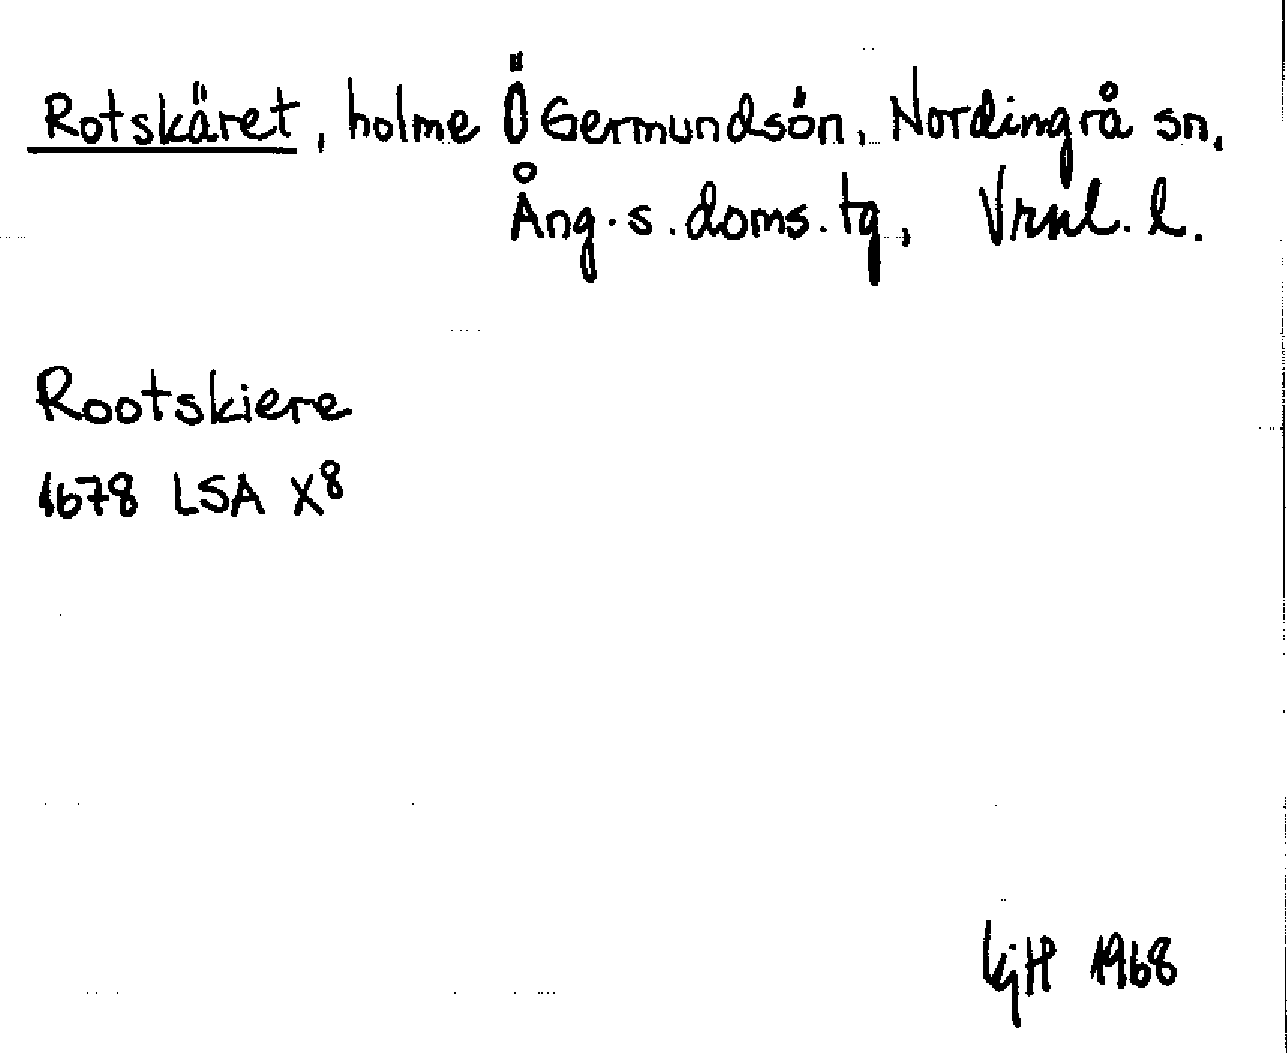 Rotskäret, holme Ö Germundsön, Nordingrå sn,
Ång. s. doms. tg, Vrnl. l.
Rootskiere
1678 LSA X8
1968